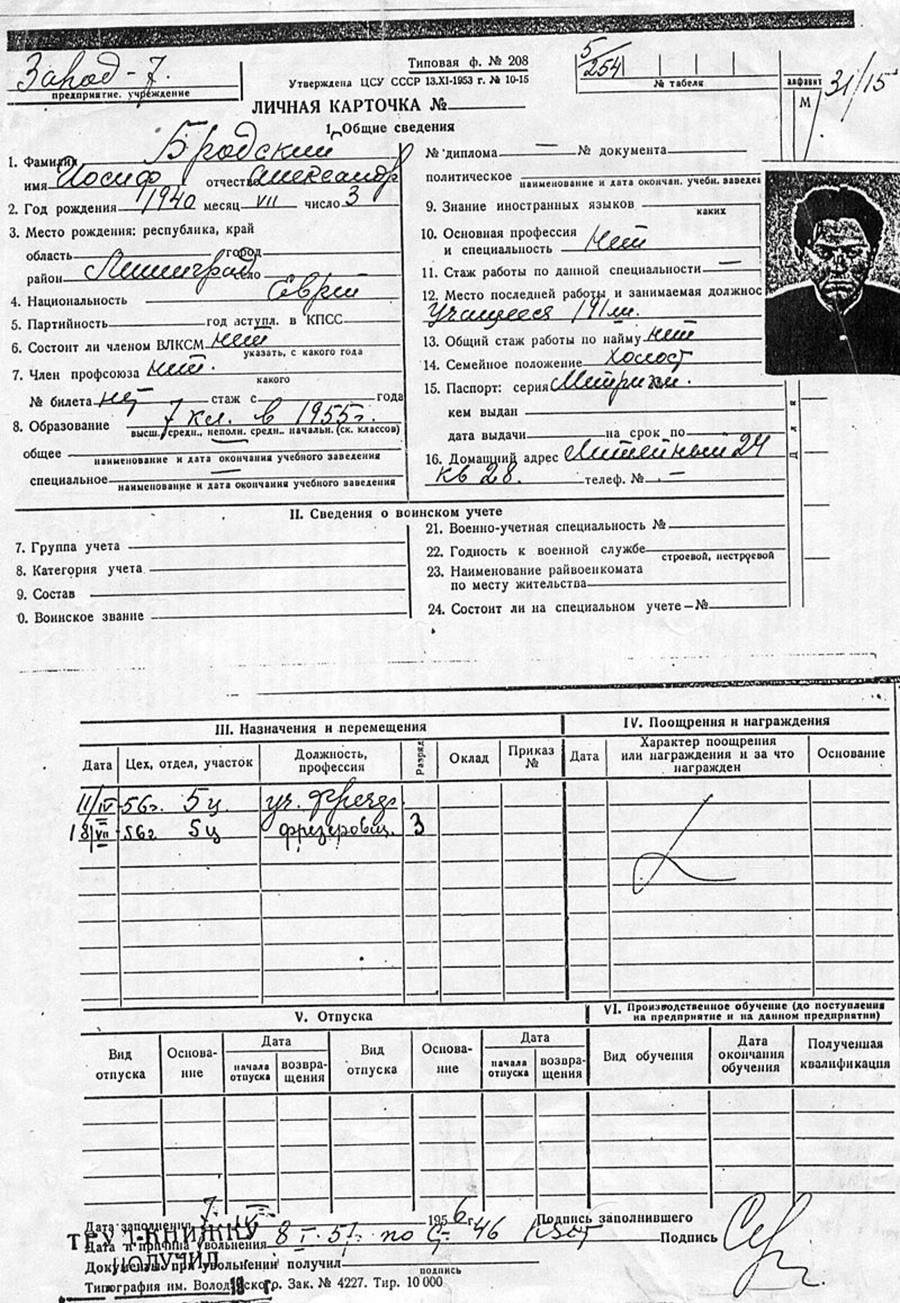 Завод-7.
предприятие. учреждение
Типовая ф. № 208
Утверждена ЦСУ СССР 13.XI-1953 г. № 10-15
5/254
№ табеля
алфавит
М
31/15
ЛИЧНАЯ КАРТОЧКА №
I. Общие сведения
1. Фамилия Бродский
имя Иосиф отчество Александр
2. Год рождения 1940 месяц VII число 3
3. Место рождения: республика, край
область город
район Ленинград село
4. Национальность Еврей
5. Партийность год вступл. в КПСС
6. Состоит ли членом ВЛКСМ нет
указать, с какого года
7. Член профсоюза нет.
какого
№ билета нет стаж с года
8. Образование 7 кл. в 1955г.
высш. средн., неполн. средн. начальн. (ск. классов)
общее
наименование и дата окончания учебного заведения
специальное —
наименование и дата окончания учебного заведения
№ диплома — № документа
политическое
наименование и дата окончан. учебн. заведе
9. Знание иностранных языков
каких
10. Основная профессия
и специальность нет
11. Стаж работы по данной специальности —
12. Место последней работы и занимаемая должнос
Учащееся 191 ш.
13. Общий стаж работы по найму нет
14. Семейное положение холост
15. Паспорт: серия Метрики.
кем выдан
дата выдачи на срок по
16. Домашний адрес Литейный 24
кв 28. телеф. № —
II. Сведения о воинском учете
7. Группа учета
8. Категория учета
9. Состав
0. Воинское звание
21. Военно-учетная специальность №
22. Годность к военной службе
строевой, нестроевой
23. Наименование райвоенкомата
по месту жительства
24. Состоит ли на специальном учете — №
III. Назначения и перемещения
IV. Поощрения и награждения
Дата Цех, отдел, участок Должность, профессия Разряд Оклад Приказ № Дата Характер поощрения или награждения и за что награжден Основание
11/IV-56г. 5ц уч. фрезер.
18/VII-56г 5ц фрезеровщ. 3
V. Отпуска
VI. Производственное обучение (до поступления
на предприятие и на данном предприятии)
Вид отпуска Основание Дата начала отпуска возвращения Вид отпуска Основание Дата начала отпуска возвращения Вид обучения Дата окончания обучения Полученная квалификация
Дата заполнения 7 1956 г. Подпись заполнившего
Дата и причина увольнения 8 I-57. по 46 КЗОТ Подпись
Документы при увольнении получил
подпись
ТРУД. КНИЖКУ
ПОЛУЧИЛ
19 г.
Типография им. Володарского. Зак. № 4227. Тир. 10 000